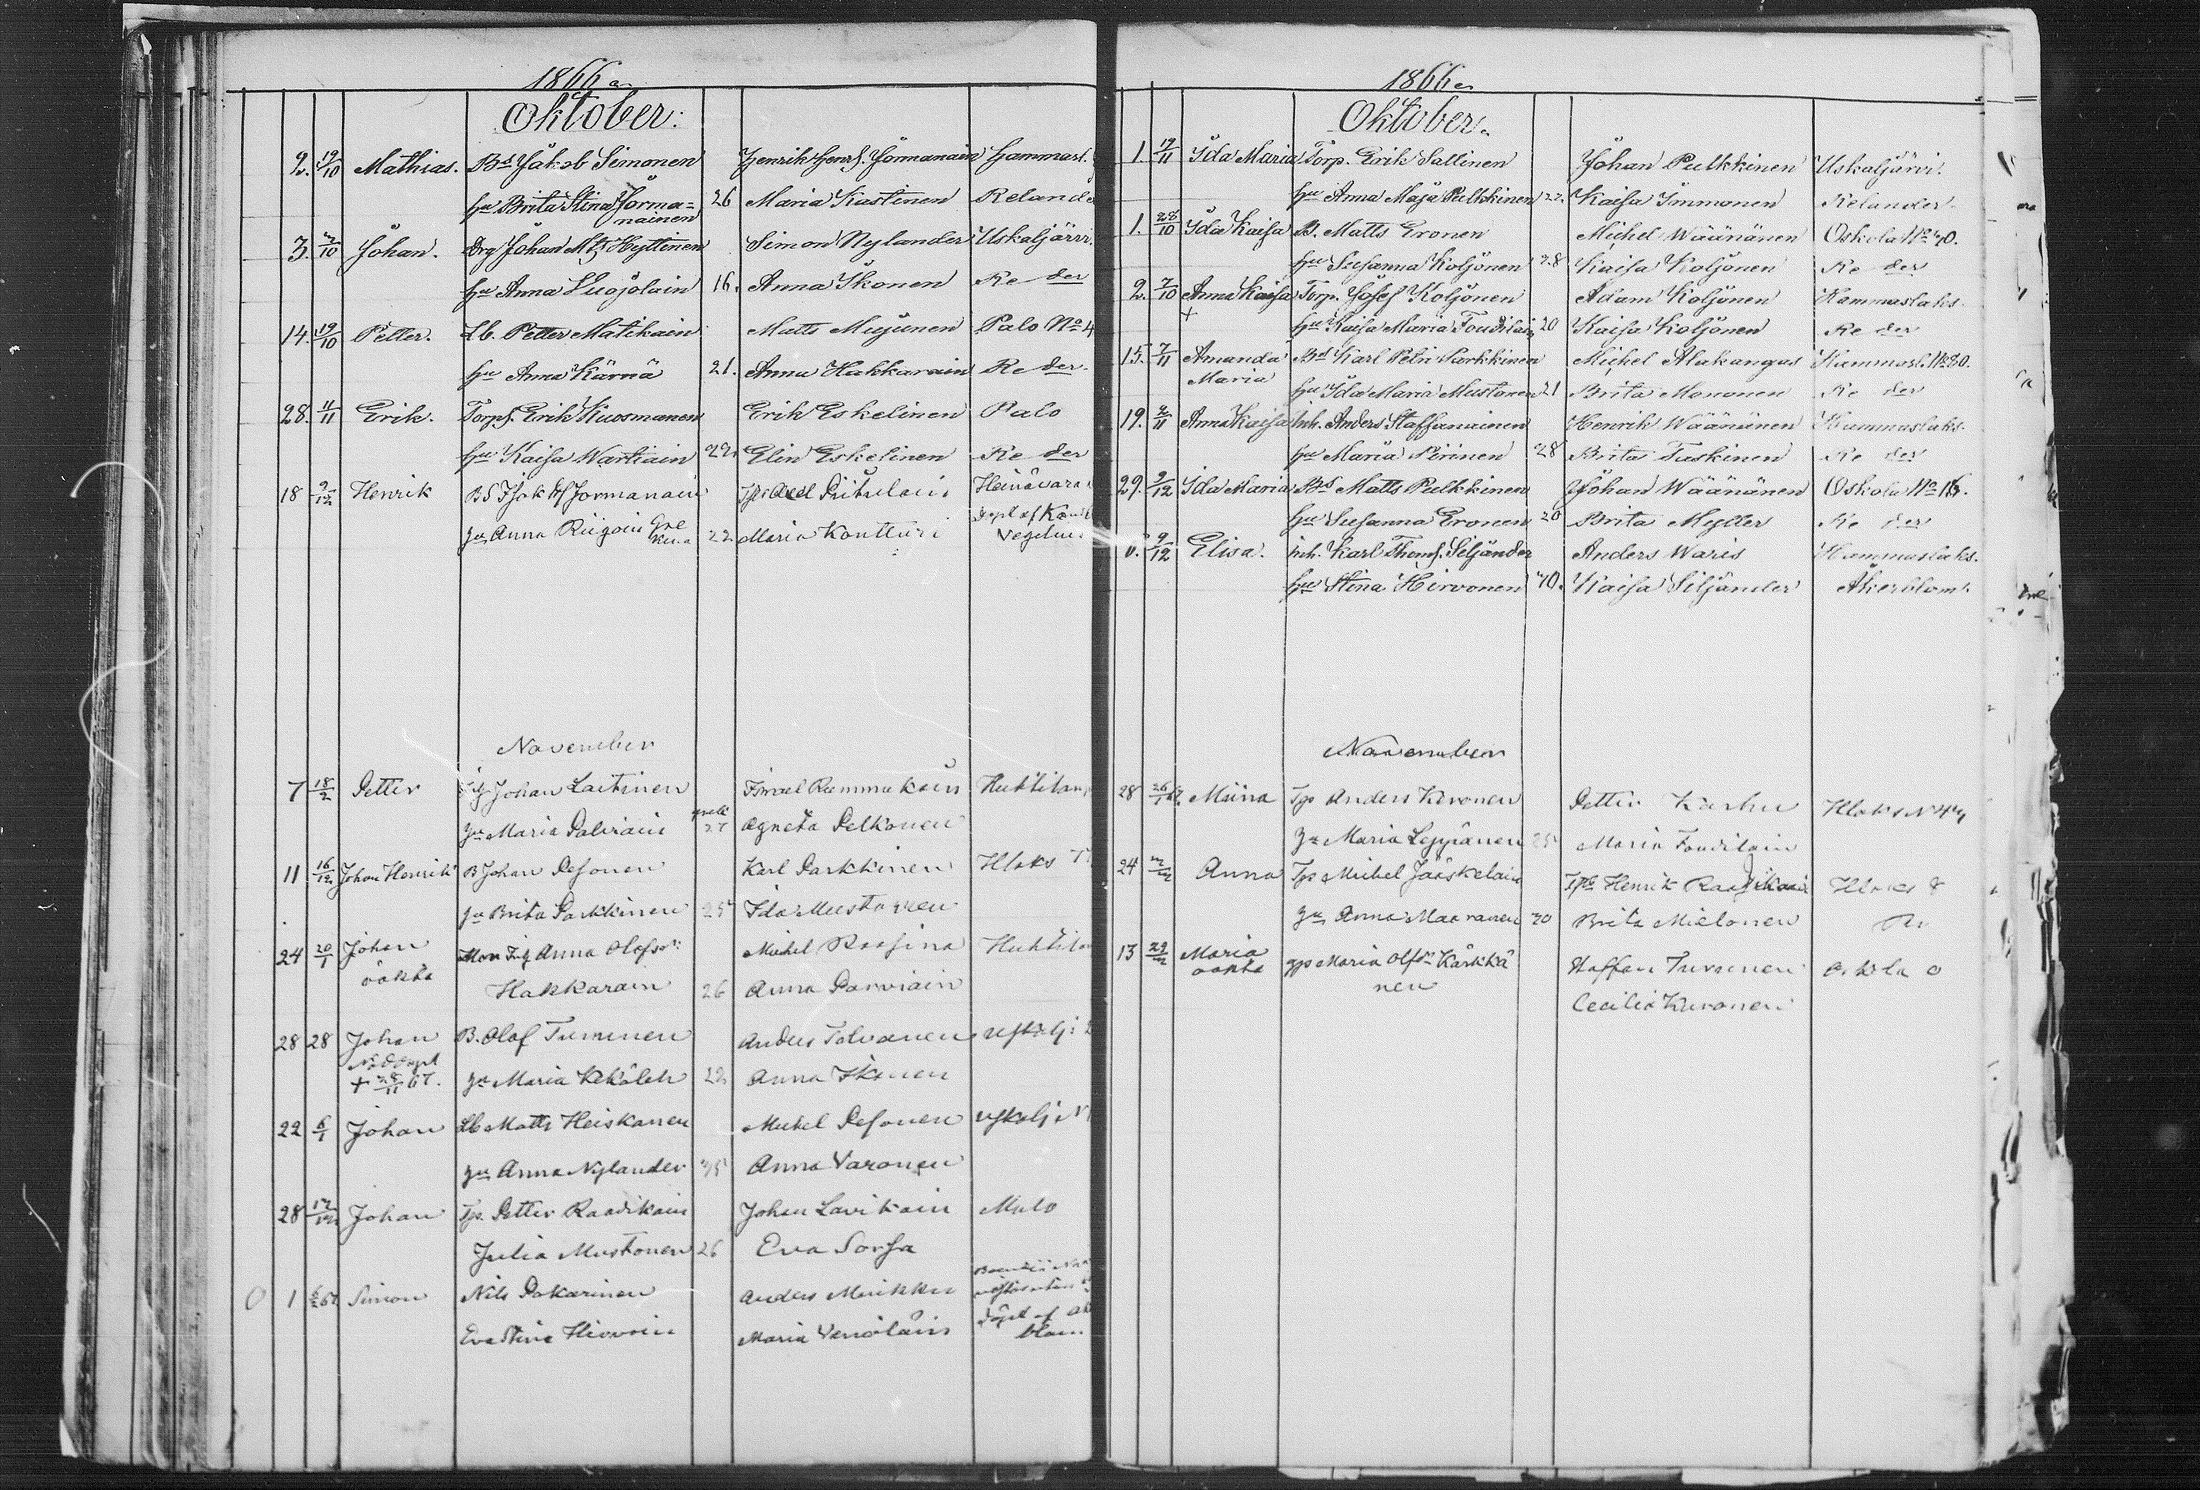 1866 a
Oktober:
2. 19/10 Mathias. Bd Jakob Simonen Henrik Henrs. Jormanain Hammasl.
hu Brita Stina Jorma= 26 Maria Kastinen Reland
nainen
3. 10 Johan. Drg Johan Mts Hyttinen Simon Nylander Uskaljärvi
hu Anna Huojolain 16. Anna Ikonen Re der
14. 19/10 Petter. Lb. Petter Matikain Matts Mujunen Palo No 4
hu Anna Kärnä 21. Anna Hakkarain Re der
28. 11/11 Erik. Torps. Erik Kuosmanen Erik Eskelinen Palo
hu Kaisa Wartiain 22. Elin Eskelinen Re der
18 9/12 Henrik BS Isak Jormanain Heinävara
hu Anna 22 Maria Kontturi
November
7 18/2 Petter Johan Laitinen Israel Rummukain
hu Maria Palviain 27 Agneta Pelkonen
11 16/12 Johan Henrik B Johan Pesonen Karl Parkkinen Hlaks
hu Brita Parkkinen 25 Ida Mustonen
24 20/1 Johan Anna Olofsdr Michel Huhtila
oäkta Hakkarain 26 Anna Parviain
28 28 Johan B. Olof Turunen Anders Tolvanen
Nöddöpt
+ 28/11 67. hu Maria Kekäleh 22 Anna Ikonen
22 6/1 Johan Lb Matts Heiskanen Michel Pesonen
hu Anna Nylander 35 Anna Varonen
28 Johan Tp. Petter Raadikain Johan Lavikain Mulo
Julia Mustonen 26 Eva Sorsa
1 Simon Nils Pakarinen Anders Muikku
Eva Stina Hirvoin Maria Venäläin
1866 a
Oktober.
1. 17/11 Ida Maria Torp. Erik Sallinen Johan Pulkkinen Uskaljärvi.
hu Anna Maja Pulkkinen 22. Kaisa Immonen Relander.
1. 28/10 Ida Kaisa B. Matts Eronen Michel Wäänänen Oskola No 40.
hu Susanna Koljonen 28 Kaisa Koljonen Re der
2. 7/10 Anna Kaisa Torp. Josef Koljonen Adam Koljonen Hammaslaks
+ hu Kaisa Maria 20 Kaisa Koljonen Re der
15. 7/11 Amanda Bd Karl Petri Parkkinen Michel Alakangas Hammasl. No 30.
Maria hu Ida Maria Mustonen 21 Brita Mononen Re der
19. 2/11 Anna Kaisa Inh. Anders Staffanainen Henrik Wäänänen Hammaslaks.
hu Maria Piirinen 28 Brita Tuskinen Re der
29. 9/12 Ida Maria Bd Matts Pulkkinen Johan Wäänänen Oskola No 16.
hu Susanna Eronen 20 Brita Myller Re der
9/12 Elisa. inh. Karl Thoms. Siljander Anders Waris Hammaslaks.
hu Stina Hirvonen 40. Kaisa Siljander Åkerblom.
November
28 Miina Tp Anders Kuronen Petter Karhu
hu Maria Leppänen 25 Maria
24 Anna Tp Michel Jääskelain Henrik Hlaks 8
hu Anna Maaranen 30 Brita Mielonen
13 Maria Maria Olfsdr Kärkkä Staffan Turunen
oäkta nen
Cecilia Kuronen